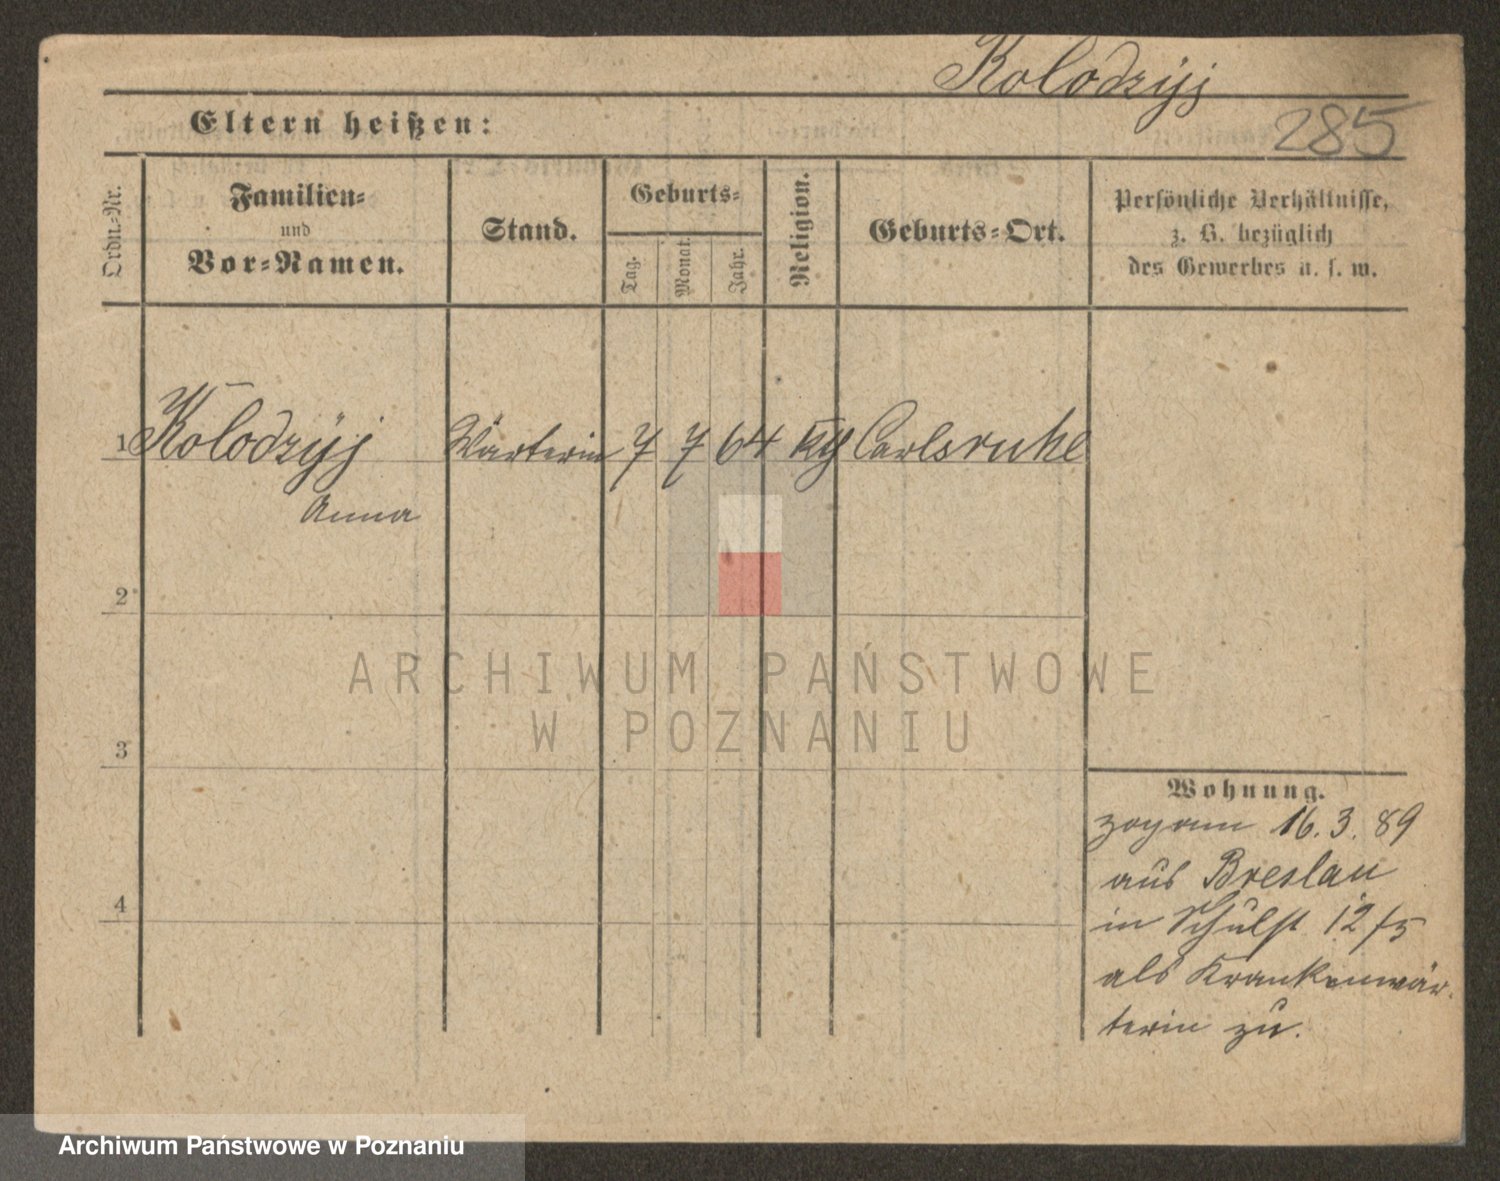 Kolodzÿj
285
Eltern heißen:
Ordn.-Nr.
Familien-
und
Vor-Namen.
Stand.
Geburts-
Tag.
Monat.
Jahr.
Religion.
Geburts-Ort.
Persönliche Verhältnisse,
z. B. bezüglich
des Gewerbes u. s. w.
1 Kolodzÿj Wärterin 7 7 64 Carlsruhe
Anna
2
3
4
Wohnung.
zog am 16. 3. 89
aus Breslau
in Schulst 12/5
als Krankenwär-
terin zu.
ARCHIWUM PAŃSTWOWE
W POZNANIU
Archiwum Państwowe w Poznaniu